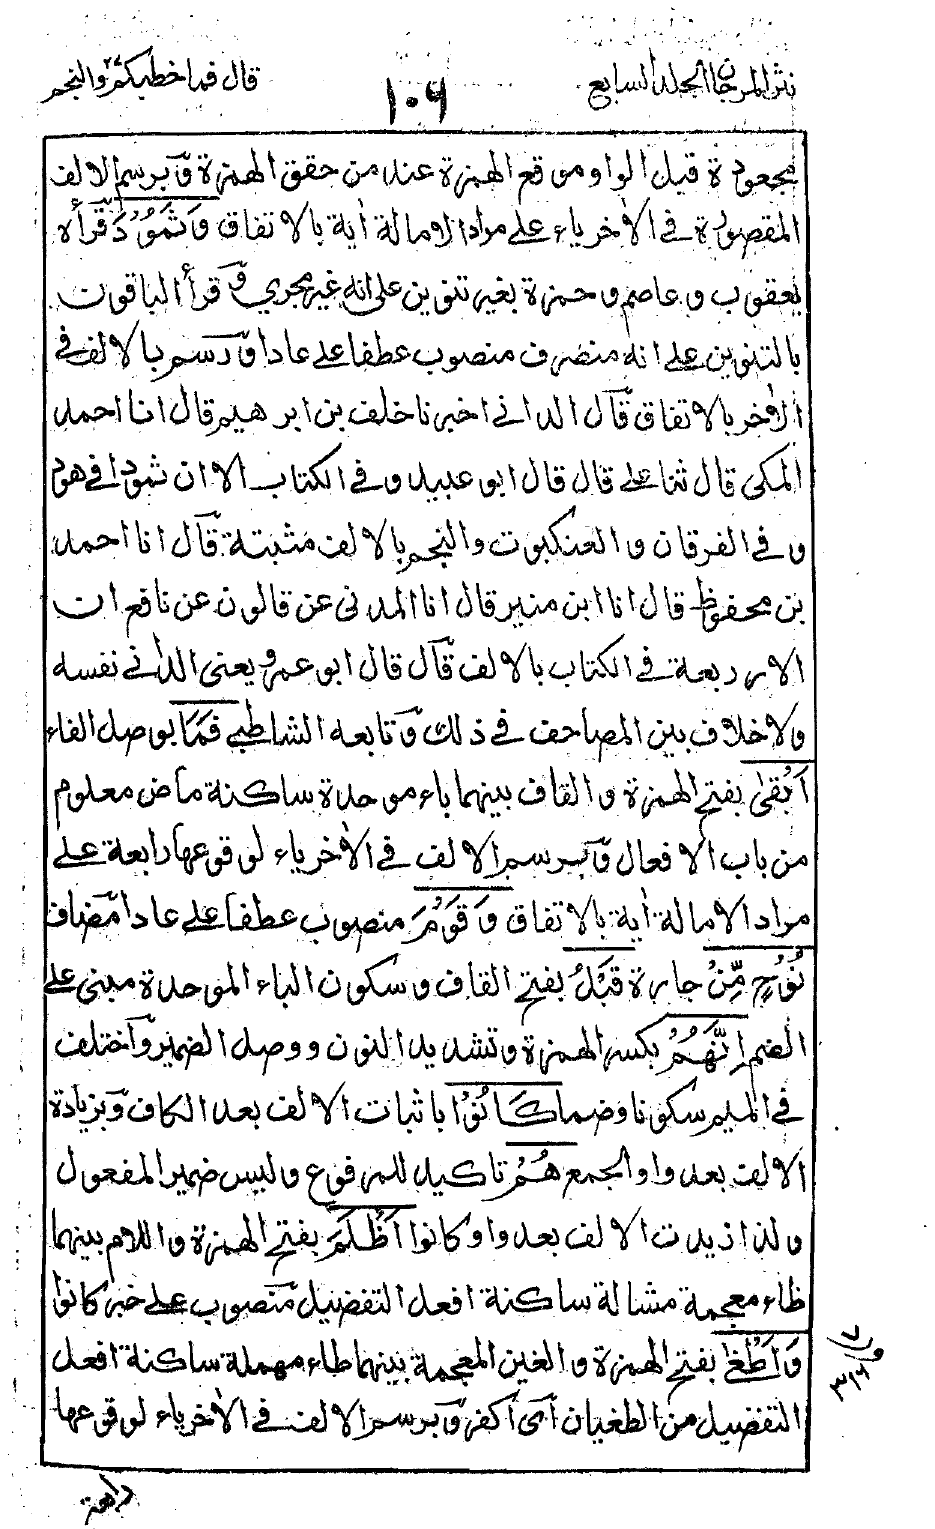 نثر المرجان الجلد السابع
١٠٦
قال فما خطبكم ٢٧ والنجم
مجعودة قبل الواو موقع الهمزة عند من حقق الهمزة وبرسم الالف
المقصورة في الآخر ياء على مراد الامالة اٰية بالاتفاق وَثَمُوْدَ قرأه
يعقوب وعاصم وحمزة بغير تنوين على انه غير مجرى وقرأ الباقون
بالتنوين على انه منصرف منصوب عطفا على عادا ورسم بالالف في
الآخر بالاتفاق قال الداني اخبرنا خلف بن ابرهيم قال انا احمد
المكي قال ثنا على قال قال ابو عبيد وفي الكتاب الا ان ثمودا في هود
وفي الفرقان والعنكبوت والنجم بالالف مثبتة قال انا احمد
بن محفوظ قال انا ابن منير قال انا المدنى عن قالون عن نافع ان
الاربعة في الكتاب بالالف قال قال ابو عمرو يعنى الداني نفسه
ولا خلاف بين المصاحف في ذلك وتابعه الشاطبي فَمَا بوصل الفاء
اَبْقٰى بفتح الهمزة والقاف بينهما باء موحدة ساكنة ماض معلوم
من باب الافعال وبرسم الالف في الآخر ياء لوقوعها رابعة على
مراد الامالة اٰية بالاتفاق وَقَوْمَ منصوب عطفا على عادا مضاف
نُوْحٍ مِّنْ جارة قَبْلُ بفتح القاف وسكون الباء الموحدة مبنى على
الضم اِنَّهُمْ بكسر الهمزة وتشديد النون ووصل الضمير واختلف
في الميم سكونا وضما كَانُوْا باثبات الالف بعد الكاف وبزيادة
الالف بعد واو الجمع هُمْ تاكيد للمرفوع وليس ضمير المفعول
ولذا زيدت الالف بعد واو كانوا اَظْلَمَ بفتح الهمزة واللام بينهما
ظاء معجمة مشالة ساكنة افعل التفضيل منصوب على خبر كانوا
وَاَطْغٰى بفتح الهمزة والغين المعجمة بينهما طاء مهملة ساكنة افعل
التفضيل من الطغيان اى اكفر وبرسم الالف في الآخر ياء لوقوعها
رابعة